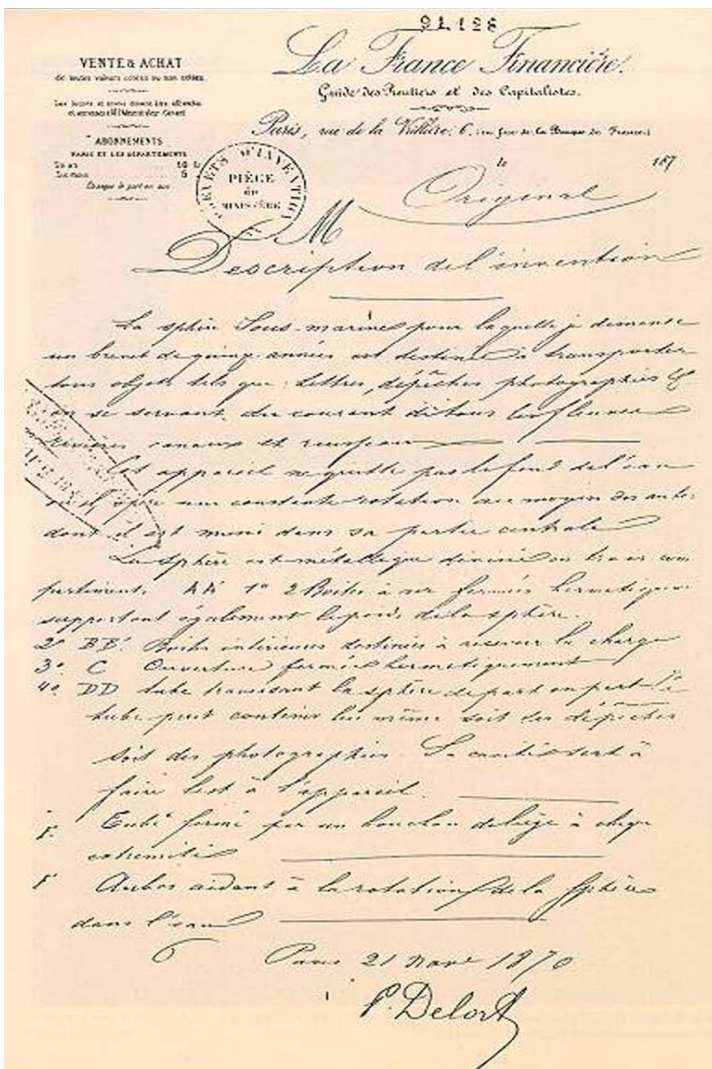 91.128
VENTE & ACHAT
de toutes valeurs cotées ou non cotées
La France Financière.
Guide des Rentiers et des Capitalistes.
Paris, rue de la Vrillière, 6, (en face de la Banque de France)
ABONNEMENTS
PARIS ET LES DÉPARTEMENTS
Un an
Six mois
BREVETS D'INVENTION
PIÈCE
du
MINISTÈRE
le 187
Original
M
Description de l'invention
La sphère Sous-marine pour laquelle je demande
un brevet de quinze années est destinée à transporter
tous objets tels que: Lettres, dépêches photographies &
en se servant du courant de tous les fleuves
rivières canaux et ruisseaux
Cet appareil ne quitte pas le fond de l'eau
où il opère une constante rotation au moyen des aubes
dont il est muni dans sa partie centrale
La sphère est métallique divisée en trois com
partiments AA' 1º 2 Boites à air fermées hermétiquem
supportant également le poids de la sphère.
2º BB' Boites intérieures destinées à recevoir la charge
3º C Ouverture fermée hermétiquement
4º DD tube traversant la sphère de part en part. Ce
tube peut contenir lui même soit des dépêches
soit des photographies. Sa cavité sert à
faire lest à l'appareil.
Tube fermé par un bouchon de liège à chaque
extrémité
F Aubes aidant à la rotation de la Sphère
dans l'eau
Paris 21 Nove 1870
P. Delort